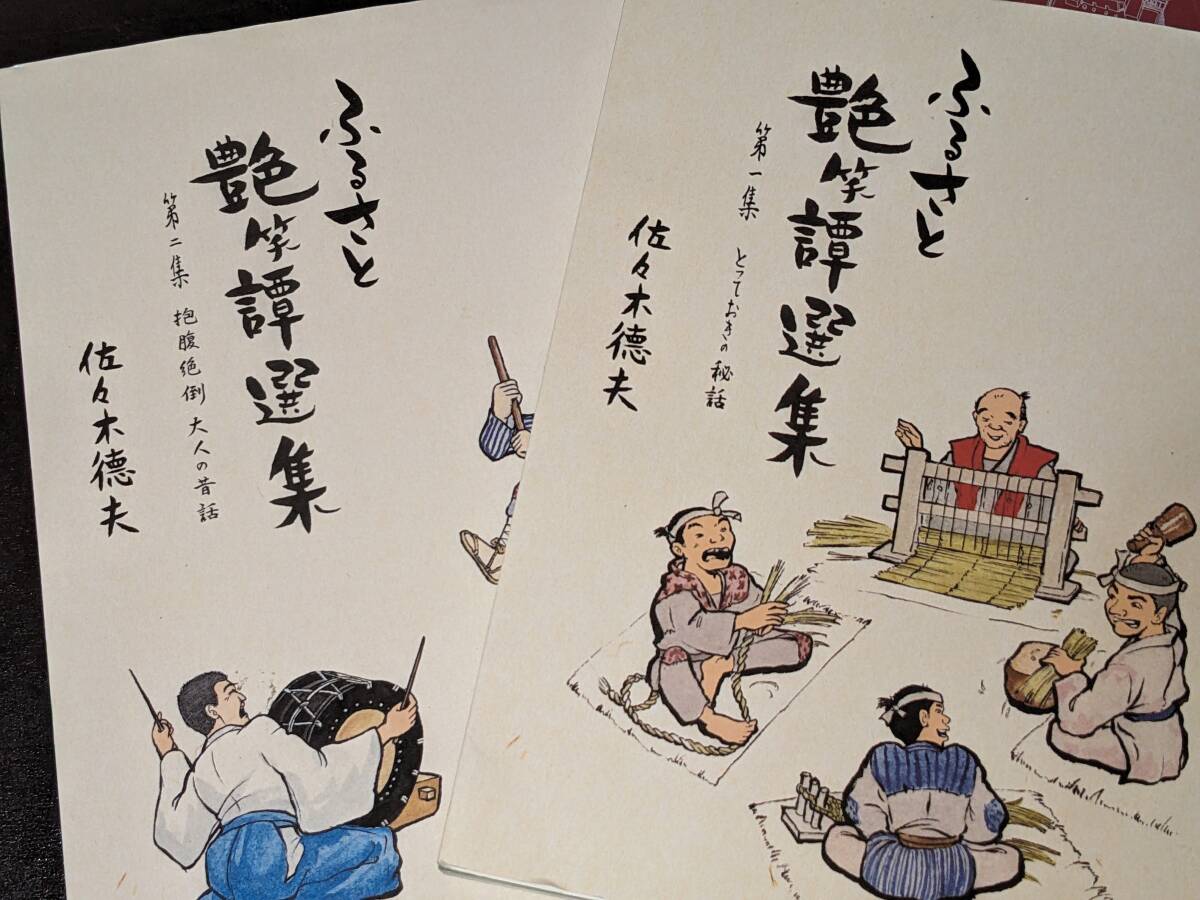 ふるさと
艶笑譚選集
第一集 とっておきの秘話
佐々木徳夫
ふるさと
艶笑譚選集
第二集 抱腹絶倒 大人の昔話
佐々木徳夫